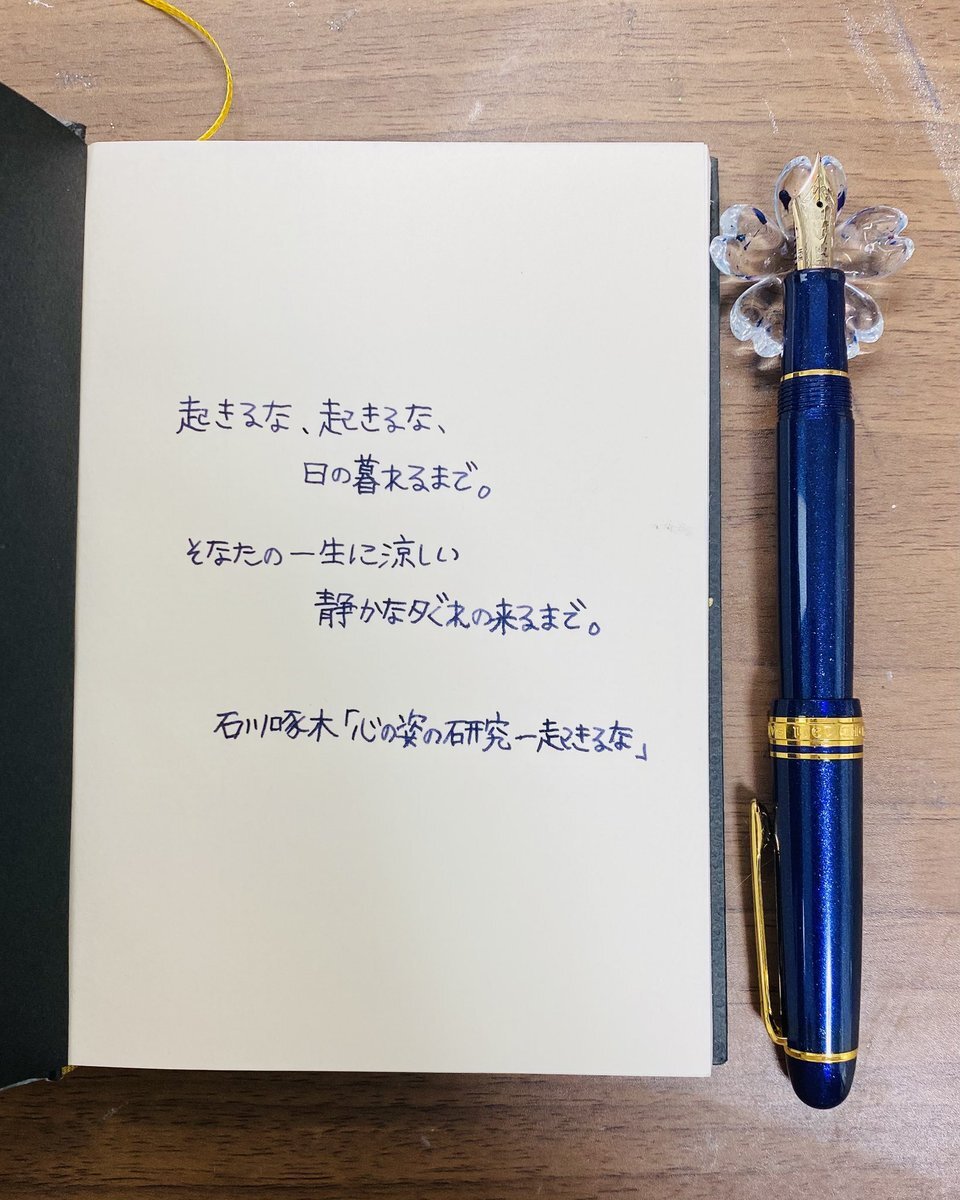 起きるな、起きるな、
日の暮れるまで。
そなたの一生に涼しい
静かな夕ぐれの来るまで。
石川啄木「心の姿の研究－起きるな」